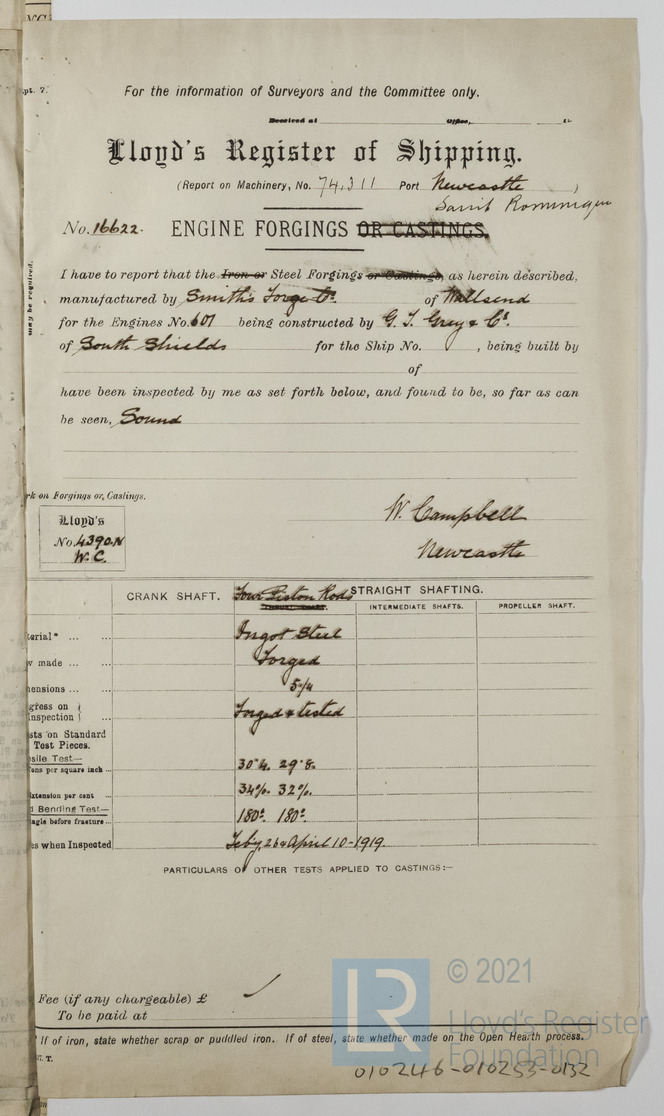 NG
pt. 7.
For the information of Surveyors and the Committee only.
Received at Office, 19
Lloyd's Register of Shipping.
(Report on Machinery, No. 74,311 Port Newcastle )
No. 16622. ENGINE FORGINGS OR CASTINGS.
I have to report that the Iron or Steel Forgings or Castings, as herein described,
manufactured by Smith's Forge Co. of Wallsend
for the Engines No. 607 being constructed by G. T. Grey & Co.
of South Shields for the Ship No. , being built by
of
have been inspected by me as set forth below, and found to be, so far as can
be seen, Sound
may be required.
rk on Forgings or, Castings.
W. Campbell
Newcastle
Lloyd's
No. 4390.N
W.C.
CRANK SHAFT. Four Piston Rods STRAIGHT SHAFTING.
THRUST SHAFT. INTERMEDIATE SHAFTS. PROPELLER SHAFT.
terial* ... ... Ingot Steel
w made ... ... Forged
ensions ... ... 5¼
gress on
nspection ... Forged & tested
sts on Standard
Test Pieces.
sile Test—
ons per square inch ... 30.4. 29.8.
Extension per cent ... 34%. 32%.
d Bending Test—
ngle before fracture ... 180°. 180°.
es when Inspected Feby. 26 & April 10-1919.
PARTICULARS OF OTHER TESTS APPLIED TO CASTINGS:—
Fee (if any chargeable) £
To be paid at
If of iron, state whether scrap or puddled iron. If of steel, state whether made on the Open Hearth process.
T.
LR
© 2021
Lloyd's Register
Foundation
010246-010253-0132